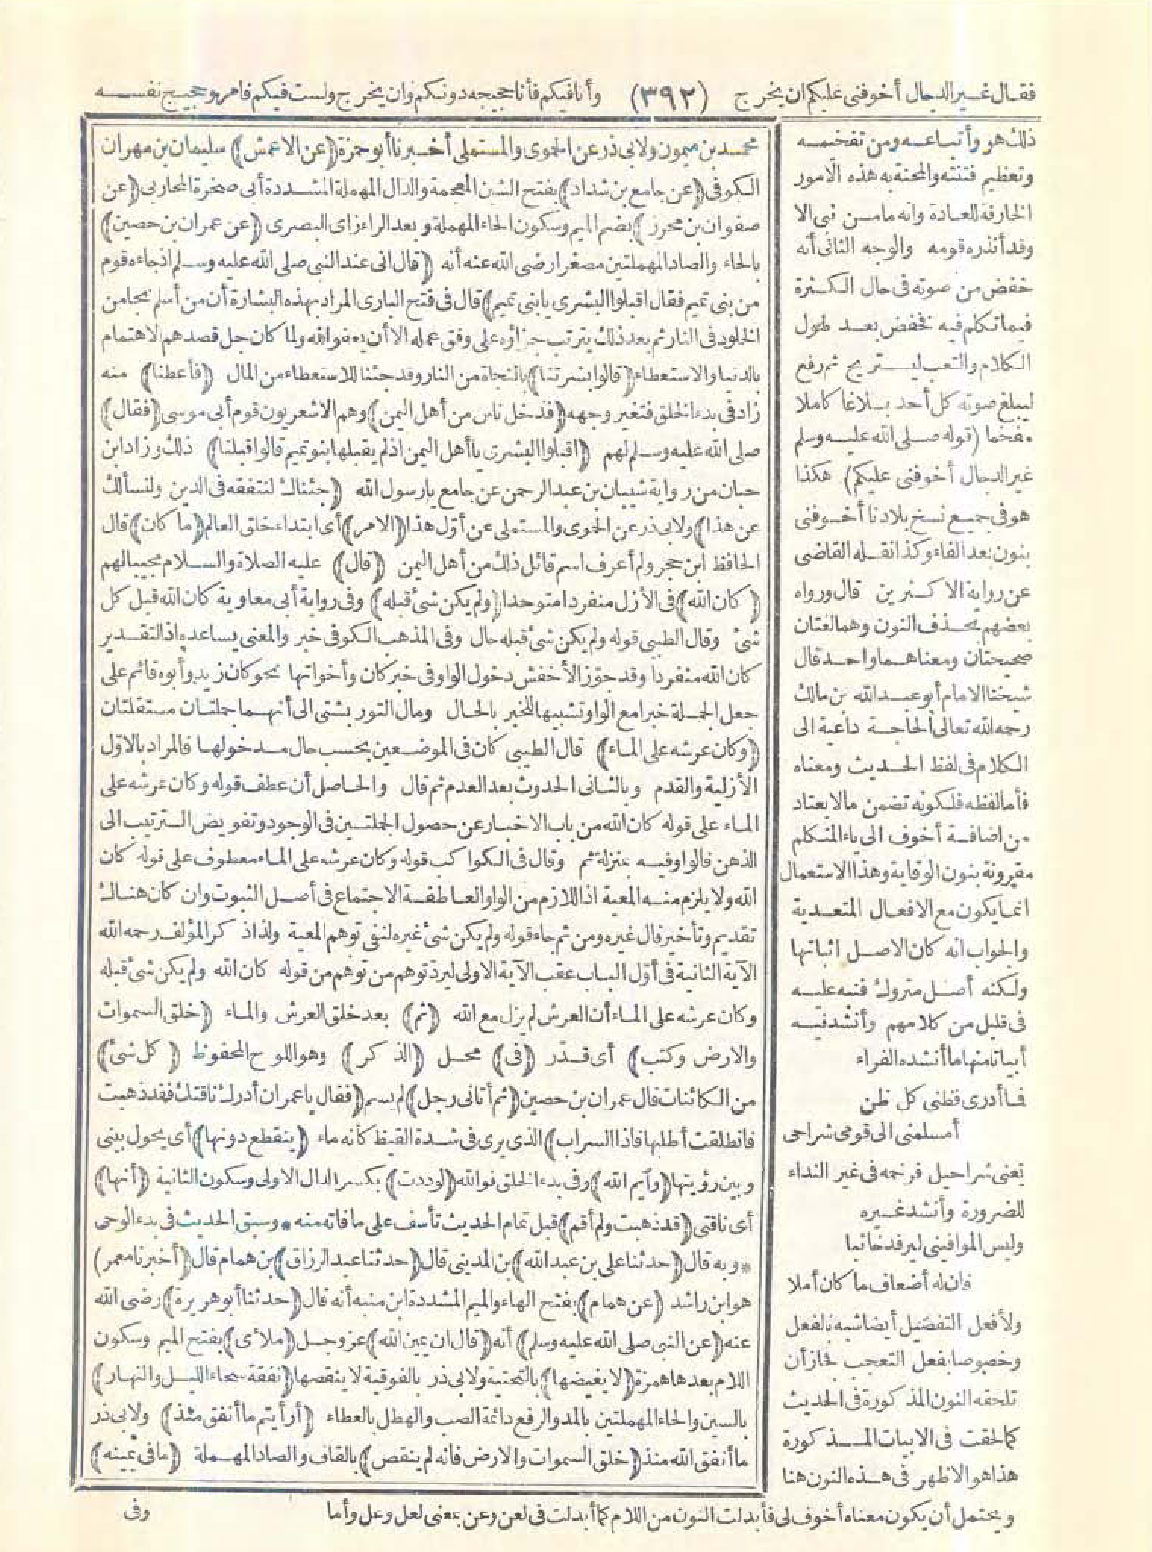 فقال غير الدجال أخوفنى عليكم ان يخرج (٣٩٢) وأنا فيكم فأنا حجيجه دونكم وان يخرج ولست فيكم فامرؤ حجيج نفسه
محمد بن ميمون ولابى ذر عن الحموى والمستملى أخبرنا أبو حمزة (عن الاعمش) سليمان بن مهران
الكوفى (عن جامع بن شداد) بفتح الشين المعجمة والدال المهملة المشددة أبى صخرة المحاربى (عن
صفوان بن محرز) بضم الميم وسكون الحاء المهملة وبعد الراء زاى البصرى (عن عمران بن حصين)
بالحاء والصاد المهملتين مصغرا رضى الله عنه أنه (قال انى عند النبى صلى الله عليه وسلم اذ جاءه قوم
من بنى تميم فقال اقبلوا البشرى يا بنى تميم) قال فى فتح البارى المراد بهذه البشارة أن من أسلم نجا من
الخلود فى النار ثم بعد ذلك يترتب جزاؤه على وفق عمله الا أن يعفو الله ولما كان جل قصدهم الاهتمام
بالدنيا والاستعطاء (قالوا بشرتنا) بالنجاة من النار وقد جئنا للاستعطاء من المال (فأعطنا) منه
زاد فى بدء الخلق فتغير وجهه (فدخل ناس من أهل اليمن) وهم الاشعريون قوم أبى موسى (فقال)
صلى الله عليه وسلم لهم (اقبلوا البشرى يا أهل اليمن اذ لم يقبلها بنو تميم قالوا قبلنا) ذلك وزاد ابن
حبان من رواية شيبان بن عبد الرحمن عن جامع يارسول الله (جئناك لنتفقه فى الدين ولنسألك
عن هذا) ولابى ذر عن الحموى والمستملى عن أوّل هذا (الامر) أى ابتداء خلق العالم (ما كان) قال
الحافظ ابن حجر ولم أعرف اسم قائل ذلك من أهل اليمن (قال) عليه الصلاة والسلام مجيبا لهم
(كان الله) فى الأزل منفردا متوحدا (ولم يكن شئ قبله) وفى رواية أبى معاوية كان الله قبل كل
شئ وقال الطيبى قوله ولم يكن شئ قبله حال وفى المذهب الكوفى خبر والمعنى يساعده اذ التقدير
كان الله منفردا وقد جوّز الأخفش دخول الواو فى خبر كان وأخواتها نحو كان زيد وأبوه قائم على
جعل الجملة خبرا مع الواو تشبيها للخبر بالحال ومال التوربشتى الى أنهما جملتان مستقلتان
(وكان عرشه على الماء) قال الطيبى كان فى الموضعين بحسب حال مدخولها فالمراد بالاوّل
الأزلية والقدم وبالثانى الحدوث بعد العدم ثم قال والحاصل أن عطف قوله وكان عرشه على
الماء على قوله كان الله من باب الاخبار عن حصول الجملتين فى الوجود وتفويض الترتيب الى
الذهن قالوا وفيه بمنزلة ثم وقال فى الكواكب قوله وكان عرشه على الماء معطوف على قوله كان
الله ولا يلزم منه المعية اذ اللازم من الواو العاطفة الاجتماع فى أصل الثبوت وان كان هناك
تقديم وتأخير قال غيره ومن ثم جاء قوله ولم يكن شئ غيره لنفى توهم المعية ولذا ذكر المؤلف رحمه الله
الآية الثانية فى أوّل الباب عقب الآية الاولى ليرد توهم من توهم من قوله كان الله ولم يكن شئ قبله
وكان عرشه على الماء أن العرش لم يزل مع الله (ثم) بعد خلق العرش والماء (خلق السموات
والارض وكتب) أى قدّر (فى) محل (الذكر) وهو اللوح المحفوظ (كل شئ)
من الكائنات قال عمران بن حصين (ثم أتانى رجل) لم يسم (فقال يا عمران أدرك ناقتك فقد ذهبت
فانطلقت أطلبها فاذا السراب) الذى يرى فى شدة القيظ كأنه ماء (ينقطع دونها) أى يحول بينى
وبين رؤيتها (وايم الله) وفى بدء الخلق فوالله (لوددت) بكسر الدال الاولى وسكون الثانية (أنها)
أى ناقتى (قد ذهبت ولم أقم) قبل تمام الحديث تأسف على ما فاته منه * وسبق الحديث فى بدء الوحى
* وبه قال (حدثنا على بن عبد الله) بن المدينى قال (حدثنا عبد الرزاق) بن همام قال (أخبرنا معمر)
هو ابن راشد (عن همام) بفتح الهاء والميم المشددة ابن منبه أنه قال (حدثنا أبو هريرة) رضى الله
عنه (عن النبى صلى الله عليه وسلم) أنه (قال ان يمين الله) عز وجل (ملأى) بفتح الميم وسكون
اللام بعدها همزة (لا يغيضها) بالتحتية ولابى ذر بالفوقية لا ينقصها (نفقة سحاء الليل والنهار)
بالسين والحاء المهملتين بالمد والرفع دائمة الصب والهطل بالعطاء (أرأيتم ما أنفق منذ) ولابى ذر
ما أنفق الله منذ (خلق السموات والارض فانه لم ينقص) بالقاف والصاد المهملة (ما فى يمينه)
ذلك هو وأتباعه ومن تفخيمه
وتعظيم فتنته والمحنة به هذه الامور
الخارقة للعادة وانه ما من نبى الا
وقد أنذره قومه والوجه الثانى أنه
خفض من صوته فى حال الكثرة
فيما تكلم فيه فخفض بعد طول
الكلام والتعب ليستريح ثم رفع
ليبلغ صوته كل أحد بلاغا كاملا
مفخما (قوله صلى الله عليه وسلم
غير الدجال أخوفنى عليكم) هكذا
هو فى جميع نسخ بلادنا أخوفنى
بنون بعد الفاء وكذا نقله القاضى
عن رواية الاكثرين قال ورواه
بعضهم بحذف النون وهما لغتان
صحيحتان ومعناهما واحد قال
شيخنا الامام أبو عبد الله بن مالك
رحمه الله تعالى الحاجة داعية الى
الكلام فى لفظ الحديث ومعناه
فأما لفظه فلكونه تضمن ما لا يعتاد
من اضافة أخوف الى ياء المتكلم
مقرونة بنون الوقاية وهذا الاستعمال
انما يكون مع الافعال المتعدية
والجواب انه كان الاصل اثباتها
ولكنه أصل متروك فنبه عليه
فى قليل من كلامهم وأنشد فيه
أبياتا منها ما أنشده الفراء
فما أدرى فظنى كل ظن
أمسلمنى الى قومى شراحى
يعنى شراحيل فرخمه فى غير النداء
للضرورة وأنشد غيره
وليس الموافينى ليرفد خائبا
فان له أضعاف ما كان أملا
ولأفعل التفضيل أيضا شبه بالفعل
وخصوصا بفعل التعجب فجاز أن
تلحقه النون المذكورة فى الحديث
كما لحقت فى الابيات المذكورة
هذا هو الاظهر فى هذه النون هنا
ويحتمل أن يكون معناه أخوف لى فأبدلت النون من اللام كما أبدلت فى لعن وعن بمعنى لعل وعل وأما
وفى